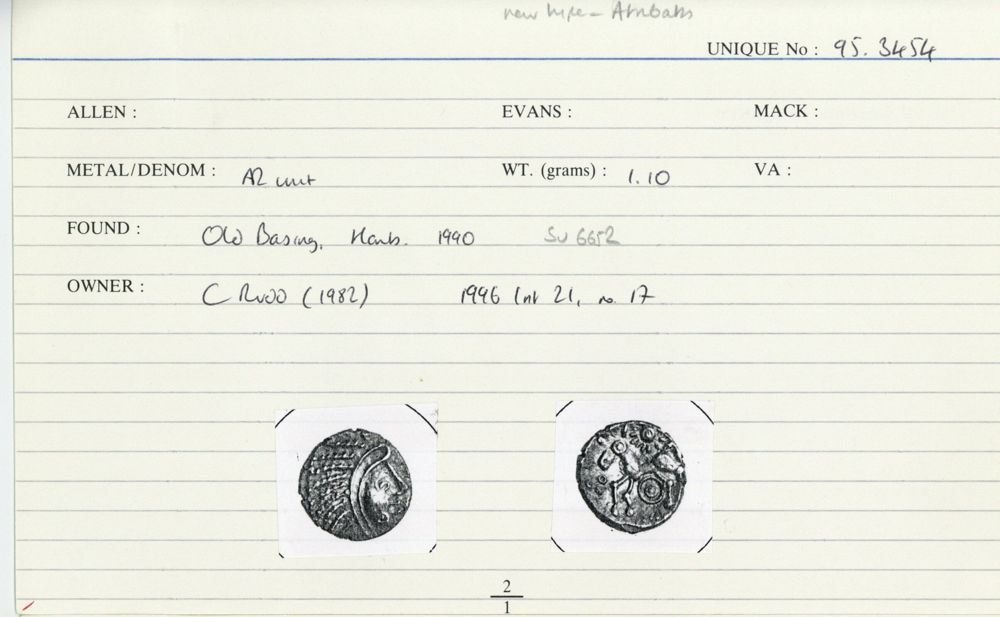 new type - Atrebatic
UNIQUE No : 95.3454
ALLEN : EVANS : MACK :
METAL/DENOM : AR unit WT. (grams) : 1.10 VA :
FOUND : Old Basing, Hants. 1990 SU 6652
OWNER : C Rudd (1982) 1996 list 21, no. 17
2
1